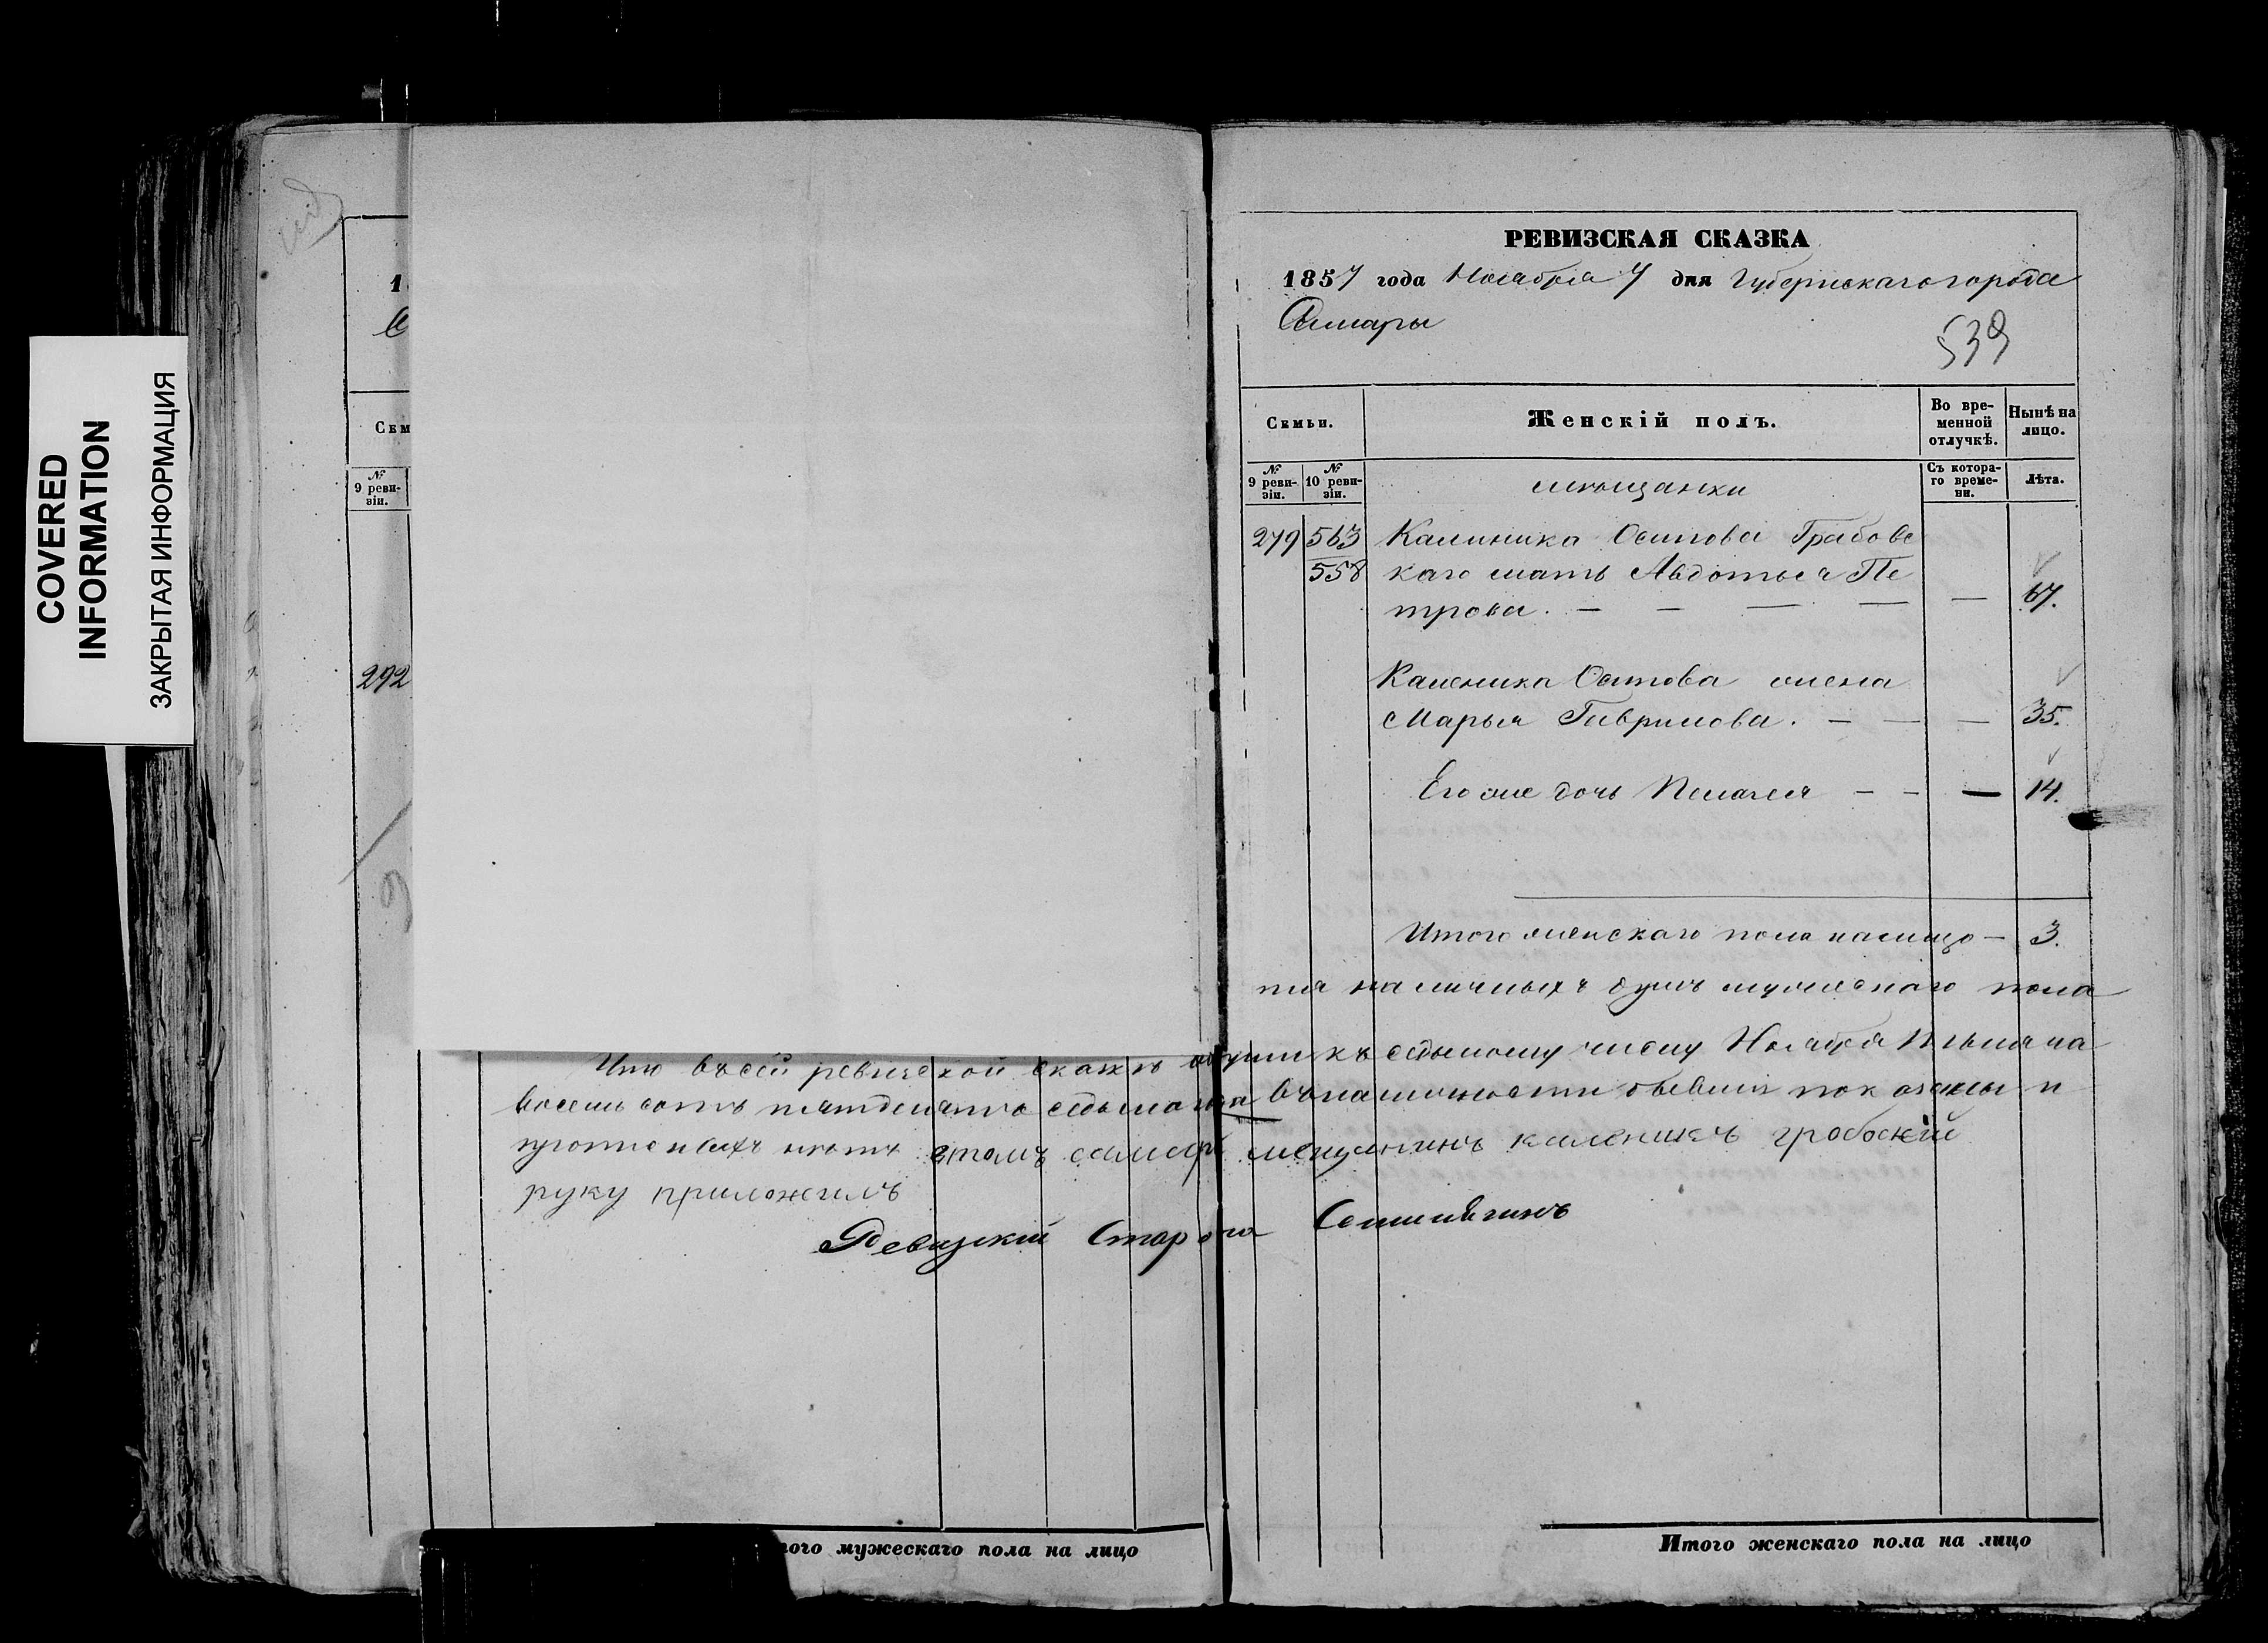 COVERED
INFORMATION
ЗАКРЫТАЯ ИНФОРМАЦИЯ
1
С
Сем
№
9 реви-
зіи.
292
РЕВИЗСКАЯ СКАЗКА
1857 года Ноября 7 дня Губернскаго города
Самары
539
Семьи.
Женскій полъ.
Во вре-
менной
отлучкѣ.
Нынѣ на
лицо.
№
9 реви-
зіи.
№
10 реви-
зіи.
мѣщанки
Съ котора-
го време-
ни.
Лѣта.
279 563 Калиника Осипова Грабовс
558 каго мать Авдотья Пе
трова. — — — — — 67.
Каленика Осипова жена
Марья Гаврилова. — — — 35.
Его же дочь Пелагея — — — 14.
Итого женскаго пола налицо — 3.
Что въ сей ревизской сказкѣ
наличныхъ душъ мужескаго пола
къ седьмому числу Ноября
восемь сотъ пятдесятъ седьмаго года въ наличности бывшіе показаны и
прописныхъ нѣтъ в томъ самарс мещанинъ каленикъ гробоскій
руку приложилъ
Ревизскій Староста
ого мужескаго пола на лицо
Итого женскаго пола на лицо